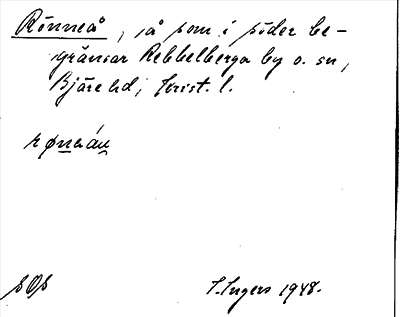 Rönneå, så som i söder be-
gränsar Rebbelberga by o. sn,
Bjäre hd, Krist. l.
rønəán
SOS
I. Ingers 1948.